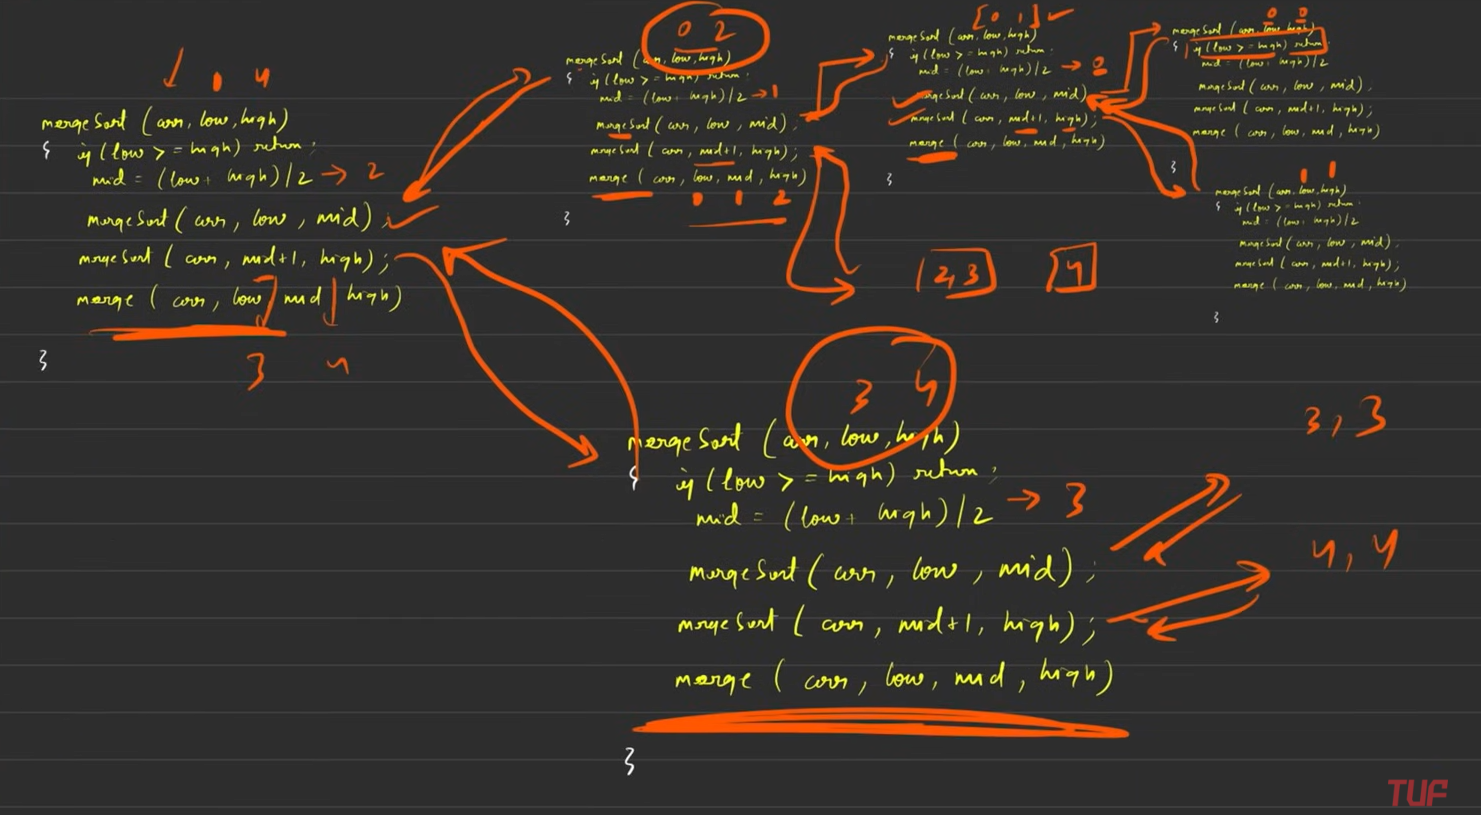 0 4
mergeSort (arr, low, high)
{ if (low >= high) return;
mid = (low + high)/2 → 2
mergeSort (arr, low, mid);
mergeSort (arr, mid+1, high);
merge (arr, low, mid, high)
}
3 4
0 2
mergeSort (arr, low, high)
{ if (low >= high) return;
mid = (low + high)/2 → 1
mergeSort (arr, low, mid);
mergeSort (arr, mid+1, high);
merge (arr, low, mid, high)
0 1 2
}
[0 1]
mergeSort (arr, low, high)
{ if (low >= high) return;
mid = (low + high)/2 → 0
mergeSort (arr, low, mid)
mergeSort (arr, mid+1, high);
merge (arr, low, mid, high)
}
0 0
mergeSort (arr, low, high)
{ if (low >= high) return;
mid = (low + high)/2
mergeSort (arr, low, mid);
mergeSort (arr, mid+1, high);
merge (arr, low, mid, high)
}
1 1
mergeSort (arr, low, high)
{ if (low >= high) return;
mid = (low + high)/2
mergeSort (arr, low, mid);
mergeSort (arr, mid+1, high);
merge (arr, low, mid, high)
}
2,3 4
3 4
mergeSort (arr, low, high)
{ if (low >= high) return;
mid = (low + high)/2 → 3
mergeSort (arr, low, mid);
mergeSort (arr, mid+1, high);
merge (arr, low, mid, high)
}
3, 3
4, 4
TUF